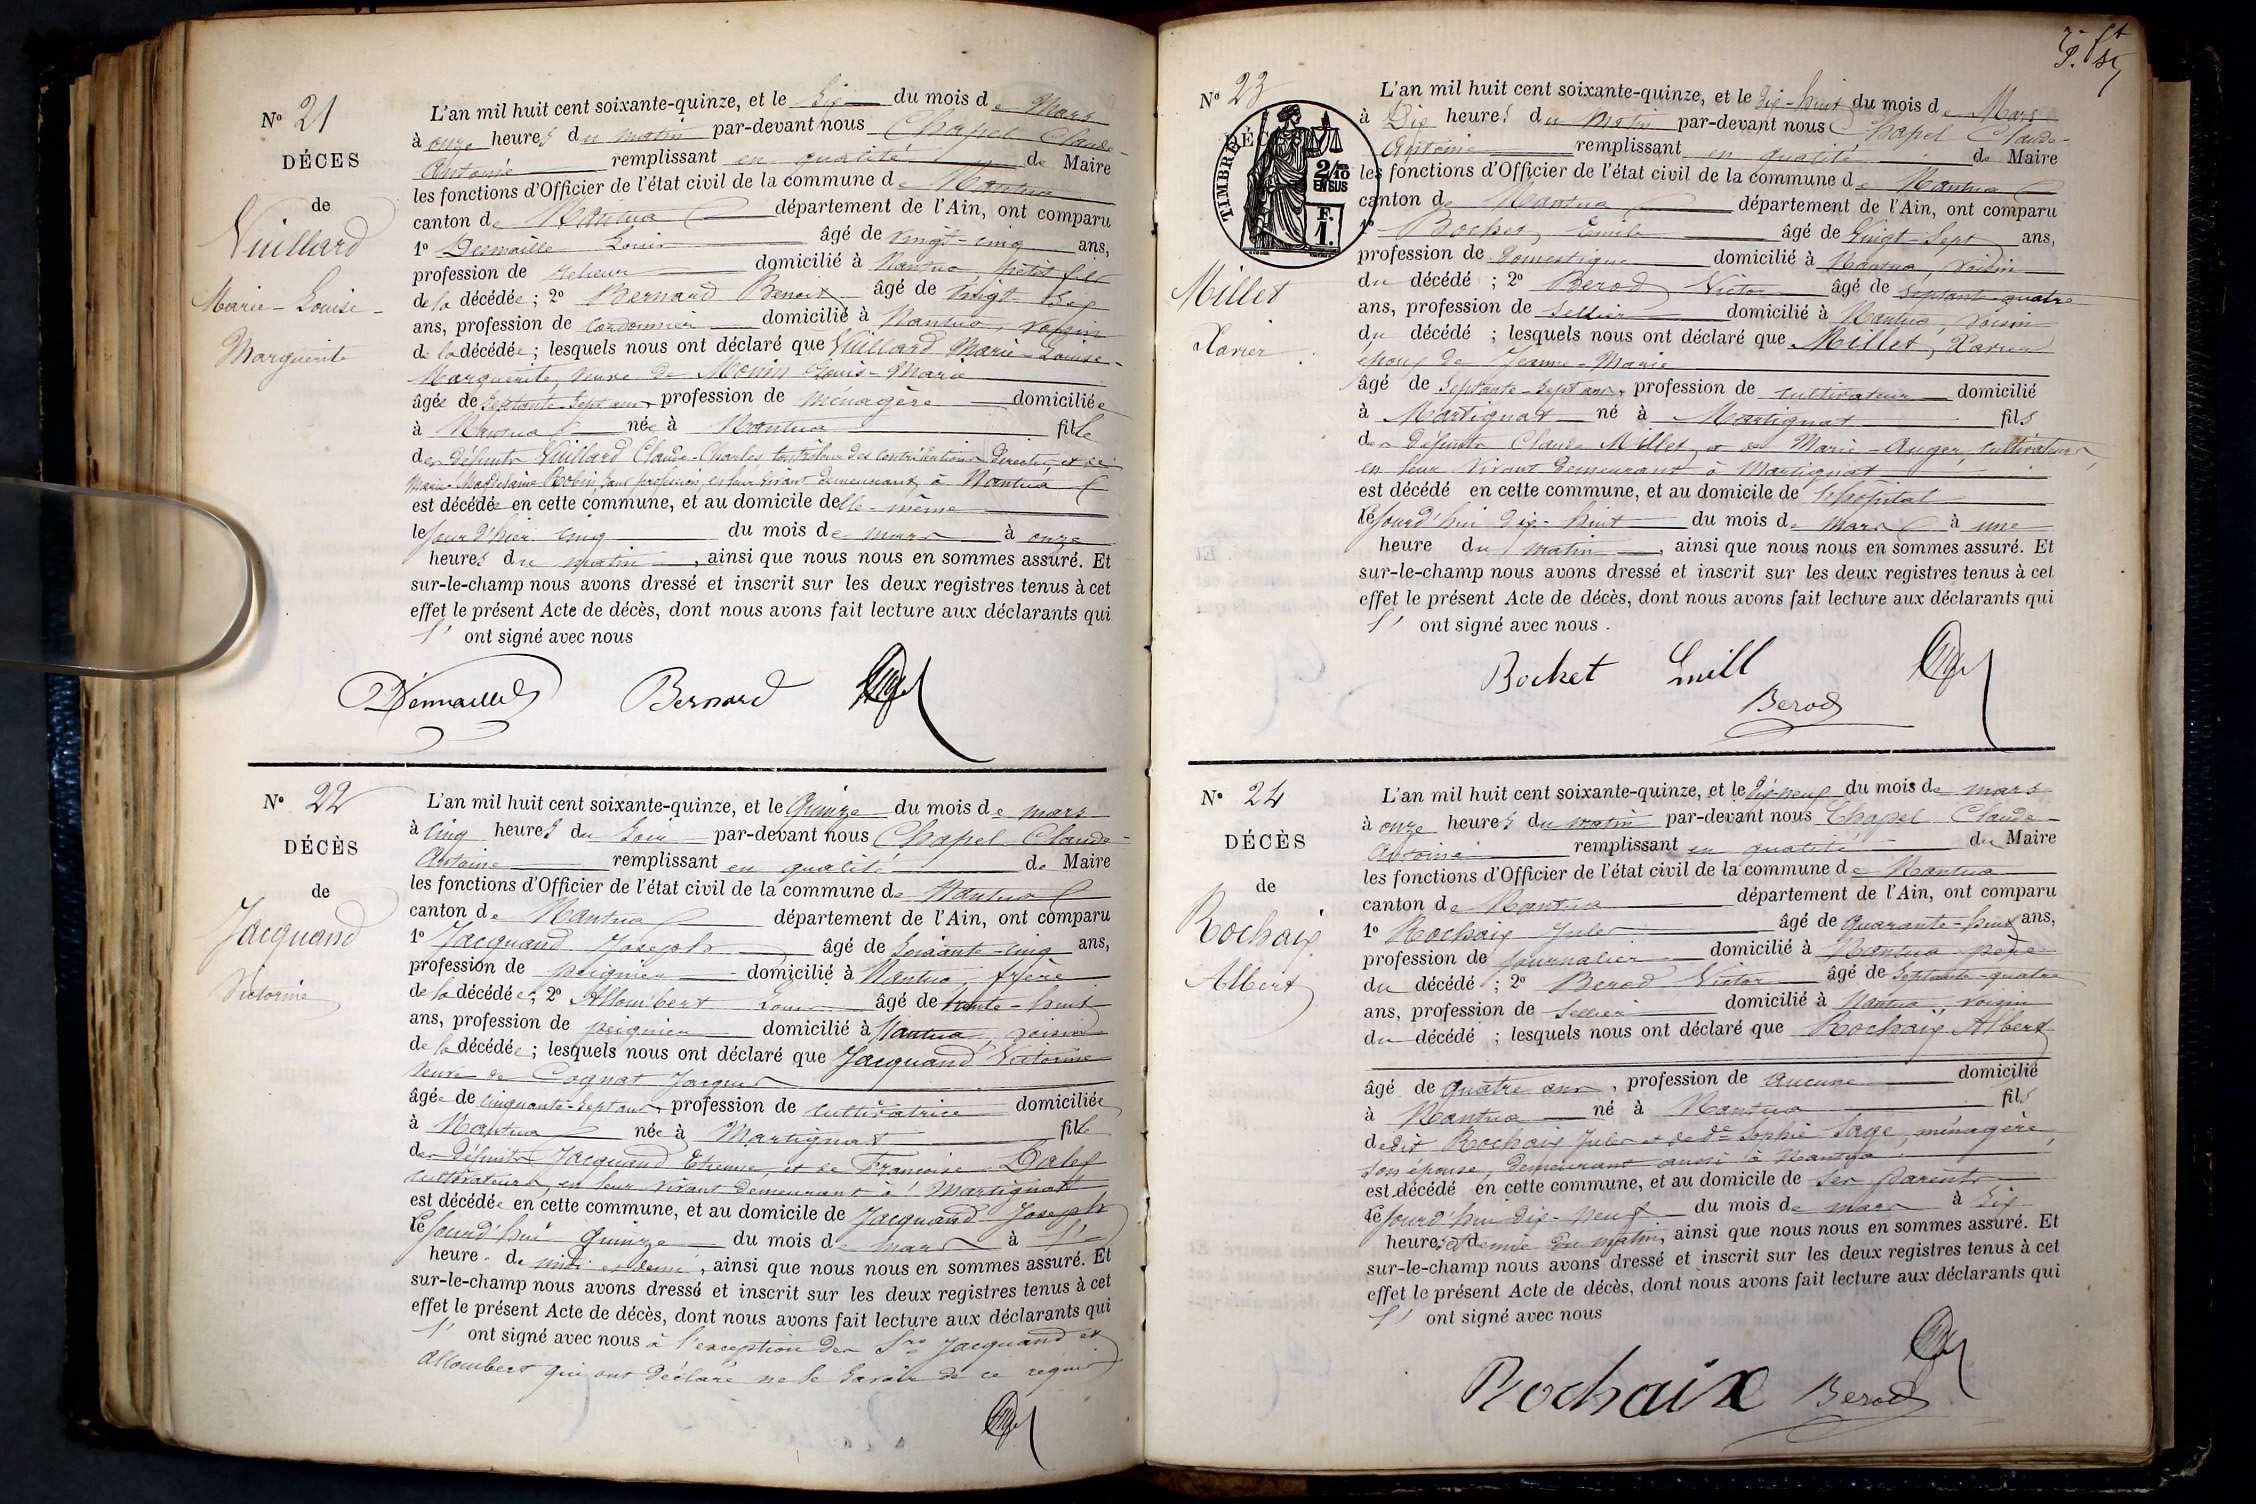 N° 21
DÉCES
de
Vuillard
Marie-Louise-
Marguerite
L'an mil huit cent soixante-quinze, et le Six du mois de Mars
à onze heures du matin par-devant nous Chapel Claude-
Antoine remplissant en qualité de Maire
les fonctions d'Officier de l'état civil de la commune de Nantua
canton de Nantua département de l'Ain, ont comparu
1° Desmaille Louis âgé de vingt-cinq ans,
profession de relieur domicilié à Nantua, petit fils
de la décédée ; 2° Bernard Benoit âgé de vingt
ans, profession de Cordonnier domicilié à Nantua, voisin
de la décédée ; lesquels nous ont déclaré que Vuillard Marie-Louise-
Marguerite, veuve de Louis-Marie
âgée de septante-sept ans, profession de ménagère domiciliée
à Nantua née à Nantua fille
des défunts Vuillard Claude-Charles Contrôleur des contributions directes, et de
Marie-Madelaine Robin, sans profession, en leur vivant demeurant à Nantua
est décédée en cette commune, et au domicile delle-même
le jour d'hier cinq du mois de mars à onze
heures du matin, ainsi que nous nous en sommes assuré. Et
sur-le-champ nous avons dressé et inscrit sur les deux registres tenus à cet
effet le présent Acte de décès, dont nous avons fait lecture aux déclarants qui
l' ont signé avec nous
Bernard
N° 22
DÉCÈS
de
Jacquand
Victorine
L'an mil huit cent soixante-quinze, et le Quinze du mois de mars
à cinq heures du Soir par-devant nous Chapel Claude-
Antoine remplissant en qualité de Maire
les fonctions d'Officier de l'état civil de la commune de Nantua
canton de Nantua département de l'Ain, ont comparu
1° Jacquand Joseph âgé de Soixante-cinq ans,
profession de peignier domicilié à Nantua, frère
de la décédée ; 2° Allombert Louis âgé de trente-huit
ans, profession de peignier domicilié à Nantua, voisin
de la décédée ; lesquels nous ont déclaré que Jacquand Victorine
veuve de Cagnat Jacques
âgée de cinquante-sept ans, profession de cultivatrice domiciliée
à Nantua née à Martignat fille
des défunts Jacquand Etienne et de Françoise Daley
cultivateurs, en leur vivant demeurant à Martignat
est décédée en cette commune, et au domicile de Jacquand Joseph
le jourd'hui Quinze du mois de mars à l'
heure de midi et demi, ainsi que nous nous en sommes assuré. Et
sur-le-champ nous avons dressé et inscrit sur les deux registres tenus à cet
effet le présent Acte de décès, dont nous avons fait lecture aux déclarants qui
l' ont signé avec nous à l'exception des Srs Jacquand et
Allombert qui ont déclaré ne le savoir de ce requis
N° 23
TIMBRE
2/10
EN SUS
F.
1.
Millet
Xavier
L'an mil huit cent soixante-quinze, et le Dix-huit du mois de Mars
à Dix heures du Matin par-devant nous Chapel Claude-
Antoine remplissant en qualité de Maire
les fonctions d'Officier de l'état civil de la commune de Nantua
canton de Nantua département de l'Ain, ont comparu
1° Bochet, Emile âgé de Vingt-Sept ans,
profession de Domestique domicilié à Nantua, voisin
du décédé ; 2° Berod Victor âgé de septante-quatre
ans, profession de Sellier domicilié à Nantua, voisin
du décédé ; lesquels nous ont déclaré que Millet, Xavier
époux de Jeanne-Marie
âgé de septante-sept ans, profession de cultivateur domicilié
à Martignat né à Martignat fils
des défunts Claude Millet, et de Marie-Auger, cultivateurs,
en leur vivant demeurant à Martignat
est décédé en cette commune, et au domicile de l'hôpital
le jourd'hui dix-huit du mois de mars à une
heure du matin, ainsi que nous nous en sommes assuré. Et
sur-le-champ nous avons dressé et inscrit sur les deux registres tenus à cet
effet le présent Acte de décès, dont nous avons fait lecture aux déclarants qui
l' ont signé avec nous .
Bochet Emill
Berod
N° 24
DÉCÈS
de
Rochaix
Albert
L'an mil huit cent soixante-quinze, et le Dix-neuf du mois de mars
à onze heures du matin par-devant nous Chapel Claude-
Antoine remplissant en qualité du Maire
les fonctions d'Officier de l'état civil de la commune de Nantua
canton de Nantua département de l'Ain, ont comparu
1° Rochaix Jules âgé de Quarante-huit ans,
profession de journalier domicilié à Nantua père
du décédé ; 2° Berod Victor âgé de septante-quatre
ans, profession de Sellier domicilié à Nantua, voisin
du décédé ; lesquels nous ont déclaré que Rochaix Albert
âgé de quatre ans, profession de aucune domicilié
à Nantua né à Nantua fils
de dit Rochaix Jules et de de Sophie Sage, ménagère,
son épouse, demeurant aussi à Nantua
est décédé en cette commune, et au domicile de ses parents
le jourd'hui Dix-neuf du mois de mars à Six
heures et demie du matin, ainsi que nous nous en sommes assuré. Et
sur-le-champ nous avons dressé et inscrit sur les deux registres tenus à cet
effet le présent Acte de décès, dont nous avons fait lecture aux déclarants qui
l' ont signé avec nous
Rochaix Berod